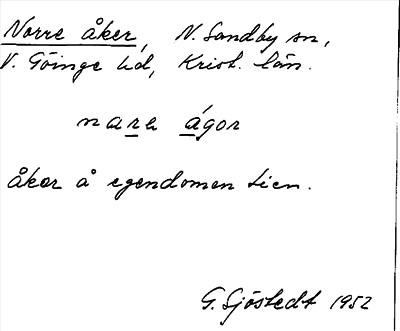 Norre åker, N. Sandby sn,
V. Göinge hd, Krist. län.
nara ágor
åker å egendomen Lien.
G. Sjöstedt 1952